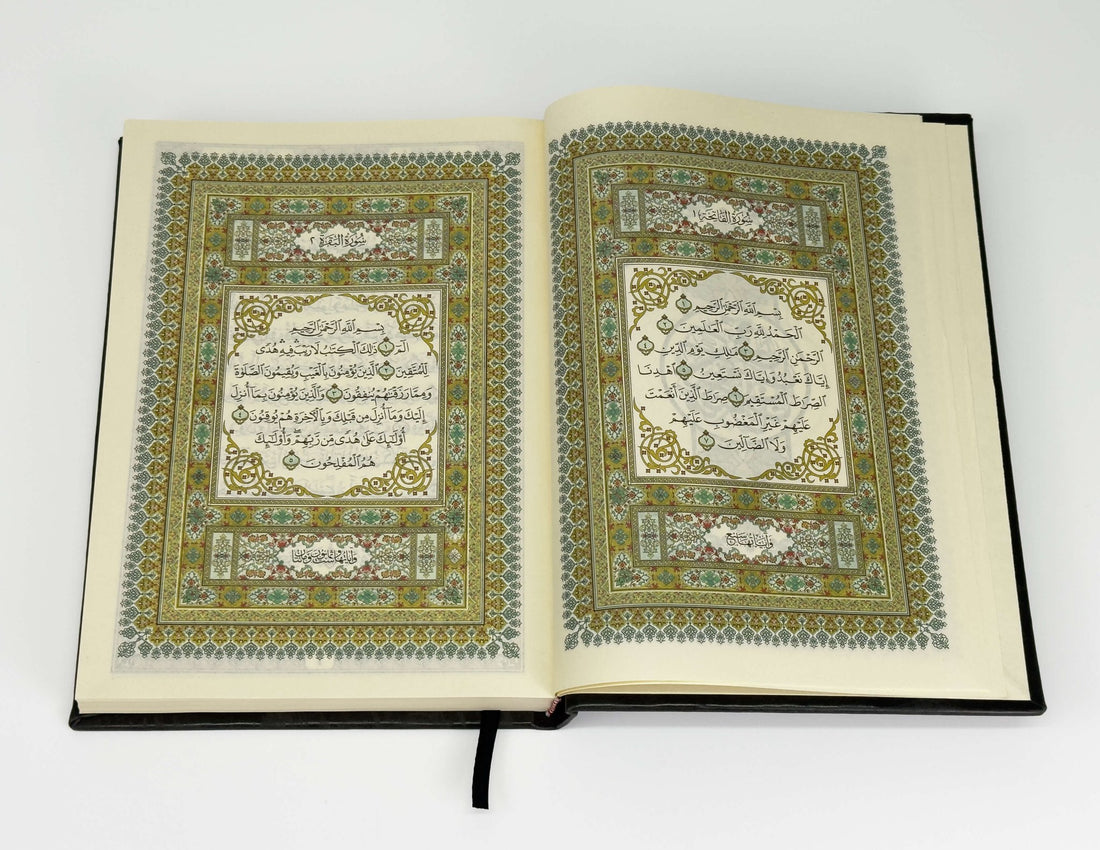 سُورَةُ الفَاتِحَةِ ١
بِسْمِ اللَّهِ الرَّحْمَٰنِ الرَّحِيمِ ١
الْحَمْدُ لِلَّهِ رَبِّ الْعَالَمِينَ ٢
الرَّحْمَٰنِ الرَّحِيمِ ٣ مَالِكِ يَوْمِ الدِّينِ ٤
إِيَّاكَ نَعْبُدُ وَإِيَّاكَ نَسْتَعِينُ ٥ اهْدِنَا
الصِّرَاطَ الْمُسْتَقِيمَ ٦ صِرَاطَ الَّذِينَ أَنْعَمْتَ
عَلَيْهِمْ غَيْرِ الْمَغْضُوبِ عَلَيْهِمْ
وَلَا الضَّالِّينَ ٧
وَآيَاتُهَا سَبْعٌ
سُورَةُ البَقَرَةِ ٢
بِسْمِ اللَّهِ الرَّحْمَٰنِ الرَّحِيمِ
الٓمٓ ١ ذَٰلِكَ الْكِتَٰبُ لَا رَيْبَ فِيهِ هُدًى
لِّلْمُتَّقِينَ ٢ الَّذِينَ يُؤْمِنُونَ بِالْغَيْبِ وَيُقِيمُونَ الصَّلَوٰةَ
وَمِمَّا رَزَقْنَٰهُمْ يُنفِقُونَ ٣ وَالَّذِينَ يُؤْمِنُونَ بِمَا أُنزِلَ
إِلَيْكَ وَمَا أُنزِلَ مِن قَبْلِكَ وَبِالْآخِرَةِ هُمْ يُوقِنُونَ ٤
أُولَٰئِكَ عَلَىٰ هُدًى مِّن رَّبِّهِمْ وَأُولَٰئِكَ
هُمُ الْمُفْلِحُونَ ٥